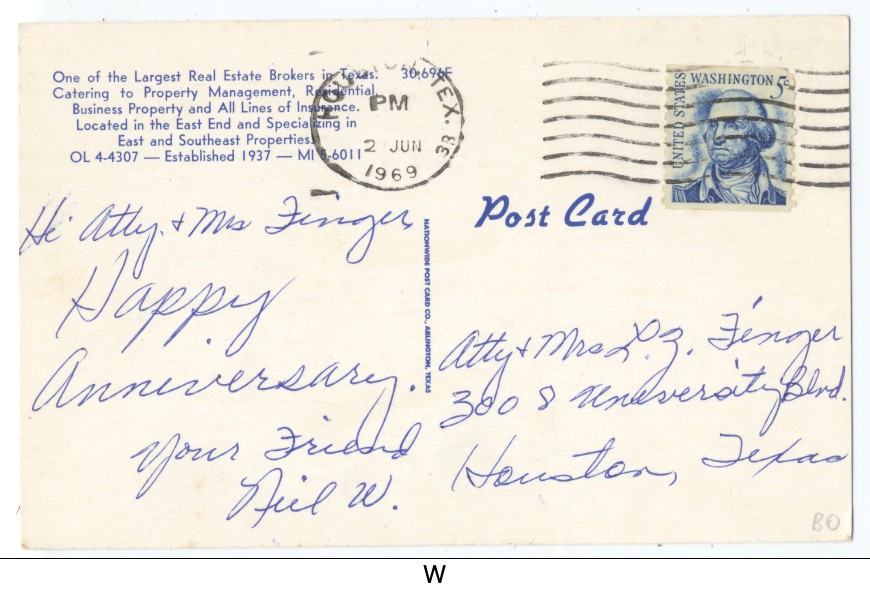 One of the Largest Real Estate Brokers in Texas. 30,696F
Catering to Property Management, Residential,
Business Property and All Lines of Insurance.
Located in the East End and Specializing in
East and Southeast Properties.
OL 4-4307 — Established 1937 — MI 5-6011
HOUSTON, TEX. 38
PM
2 JUN
1969
UNITED STATES
WASHINGTON 5c
Post Card
Hi Atty. & Mrs Finger
Happy
Anniversary.
Your Friend
Niel W.
NATIONWIDE POST CARD CO., ARLINGTON, TEXAS
Atty & Mrs L. Z. Finger
300 S University Blvd.
Houston, Texas
BO
W